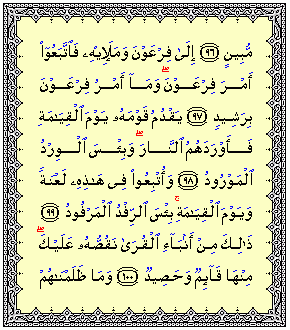 مُّبِينٍ ﴿٩٦﴾ إِلَىٰ فِرْعَوْنَ وَمَلَإِيْهِۦ فَٱتَّبَعُوٓا۟
أَمْرَ فِرْعَوْنَ ۖ وَمَآ أَمْرُ فِرْعَوْنَ
بِرَشِيدٍ ﴿٩٧﴾ يَقْدُمُ قَوْمَهُۥ يَوْمَ ٱلْقِيَـٰمَةِ
فَأَوْرَدَهُمُ ٱلنَّارَ ۖ وَبِئْسَ ٱلْوِرْدُ
ٱلْمَوْرُودُ ﴿٩٨﴾ وَأُتْبِعُوا۟ فِى هَـٰذِهِۦ لَعْنَةً
وَيَوْمَ ٱلْقِيَـٰمَةِ ۚ بِئْسَ ٱلرِّفْدُ ٱلْمَرْفُودُ ﴿٩٩﴾
ذَٰلِكَ مِنْ أَنۢبَآءِ ٱلْقُرَىٰ نَقُصُّهُۥ عَلَيْكَ ۖ
مِنْهَا قَآئِمٌ وَحَصِيدٌ ﴿١٠٠﴾ وَمَا ظَلَمْنَـٰهُمْ